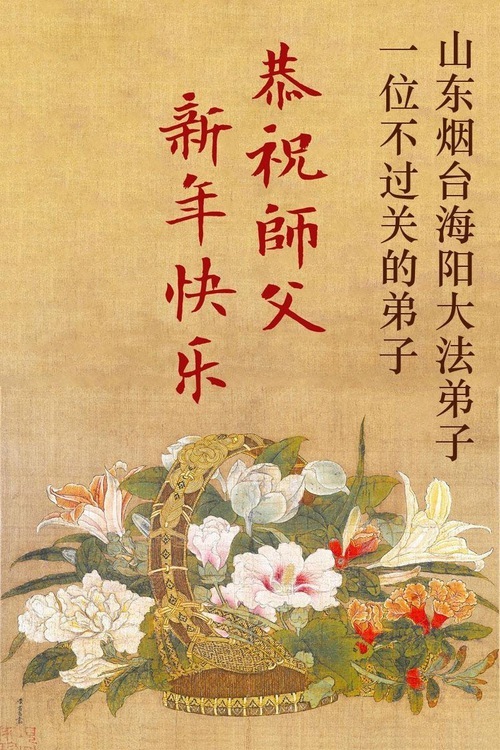 山东烟台海阳大法弟子
一位不过关的弟子
恭祝師父
新年快乐